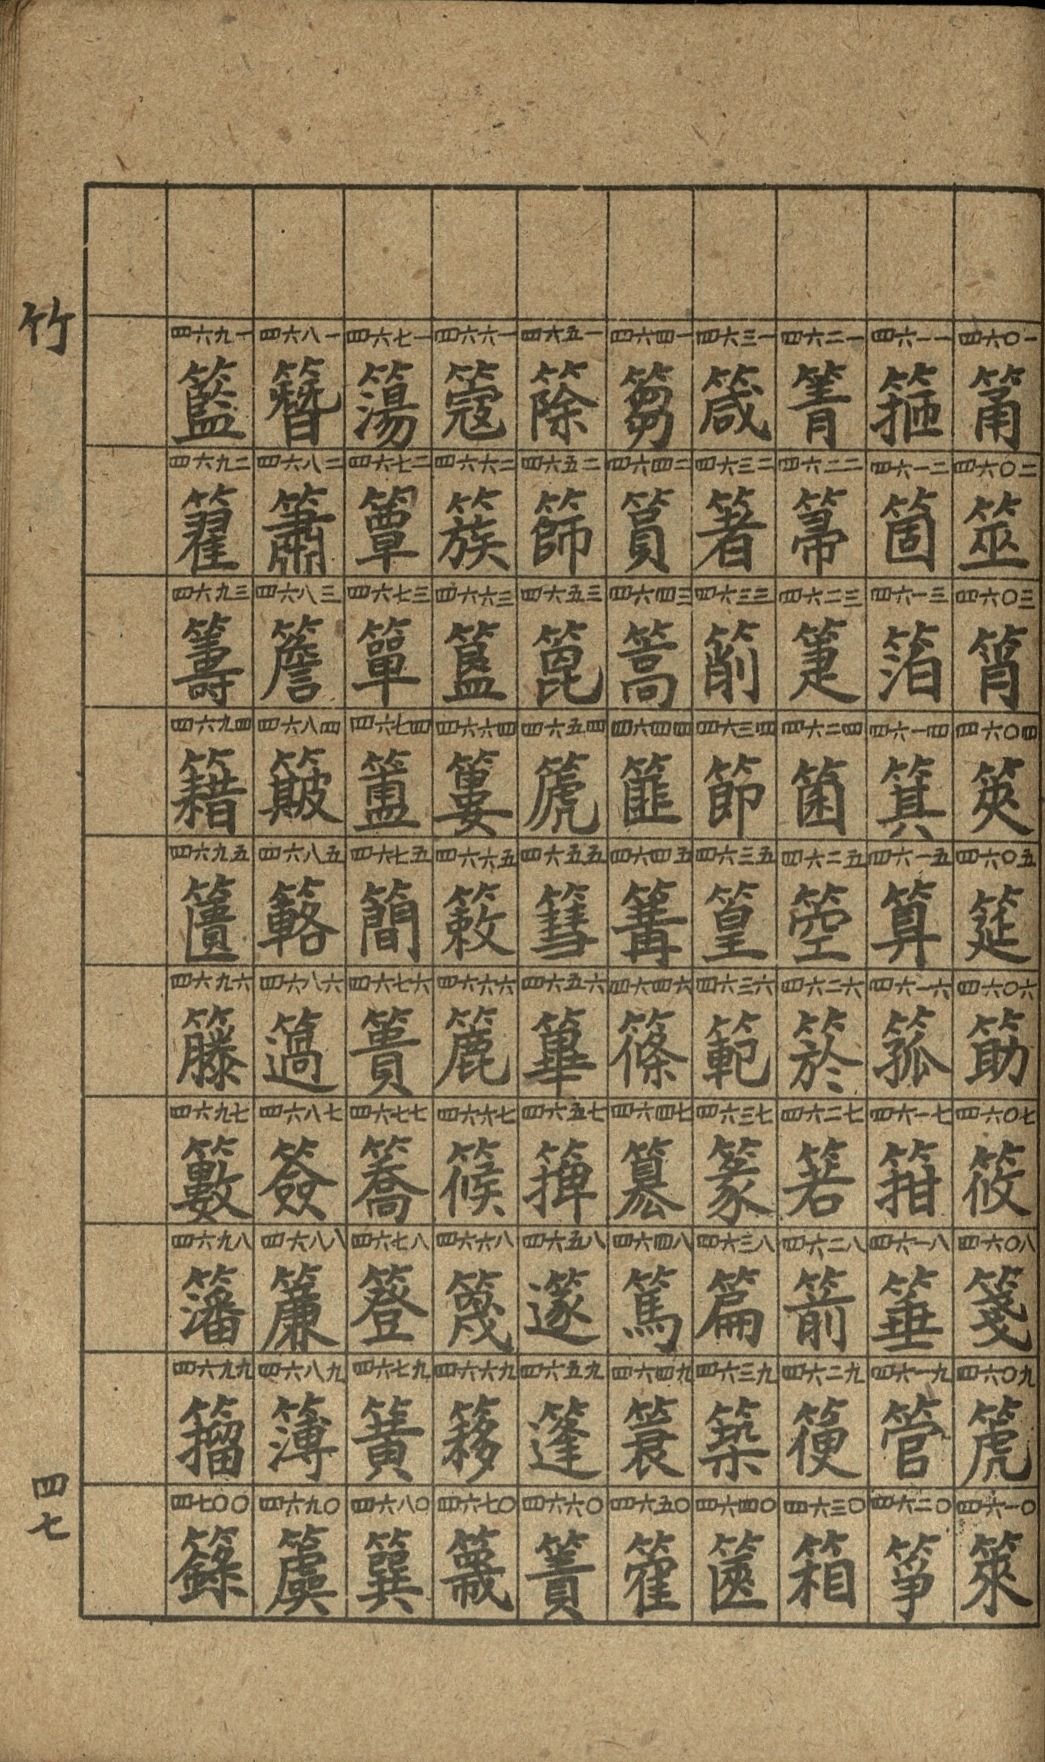 四六〇一 筩
四六〇二 筮
四六〇三 筲
四六〇四 筴
四六〇五 筵
四六〇六 筯
四六〇七 筱
四六〇八 箋
四六〇九 箎
四六一〇 箂
四六一一 箍
四六一二 箇
四六一三 箔
四六一四 箕
四六一五 算
四六一六 箛
四六一七 箝
四六一八 箠
四六一九 管
四六二〇 箏
四六二一 箐
四六二二 箒
四六二三 箑
四六二四 箘
四六二五 箜
四六二六 箊
四六二七 箬
四六二八 箭
四六二九 箯
四六三〇 箱
四六三一 箴
四六三二 箸
四六三三 箾
四六三四 節
四六三五 篁
四六三六 範
四六三七 篆
四六三八 篇
四六三九 築
四六四〇 篋
四六四一 篘
四六四二 篔
四六四三 篙
四六四四 篚
四六四五 篝
四六四六 篠
四六四七 篡
四六四八 篤
四六四九 簑
四六五〇 篧
四六五一 篨
四六五二 篩
四六五三 篦
四六五四 篪
四六五五 篲
四六五六 篳
四六五七
四六五八 篴
四六五九 篷
四六六〇 簀
四六六一 簆
四六六二 簇
四六六三 簋
四六六四 簍
四六六五 簌
四六六六 簏
四六六七 篌
四六六八 篾
四六六九 簃
四六七〇 簚
四六七一 簜
四六七二 簟
四六七三 簞
四六七四 簠
四六七五 簡
四六七六 簣
四六七七 簥
四六七八 簦
四六七九 簧
四六八〇 簨
四六八一 簪
四六八二 簫
四六八三 簷
四六八四 簸
四六八五 簵
四六八六 簻
四六八七 簽
四六八八 簾
四六八九 簿
四六九〇 簴
四六九一 籃
四六九二 籊
四六九三 籌
四六九四 籍
四六九五 籄
四六九六 籐
四六九七 籔
四六九八 籓
四六九九 籀
四七〇〇 籙
竹
四七